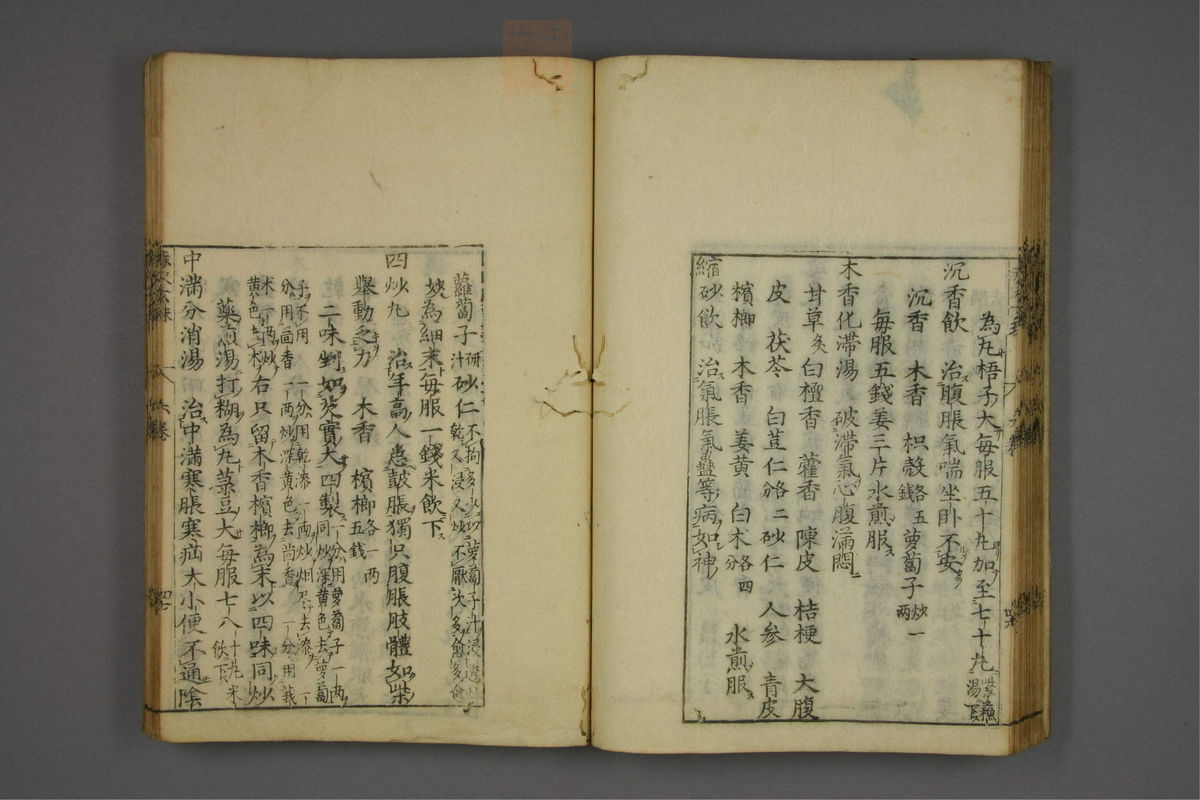 為丸梧子大毎服五十丸加至七十丸紫蘇湯下
沉香飲 治腹脹氣喘坐卧不安
沉香 木香 枳殻各五錢 萝蔔子炒一兩
毎服五錢姜三片水煎服
木香化滞湯 破滞氣心腹滿悶
甘草炙 白檀香 藿香 陳皮 桔梗 大腹
皮 茯苓 白荳仁各二分 砂仁 人參 青皮
檳榔 木香 姜黄 白术各四分 水煎服
縮砂飲 治氣脹氣蠱等病如神
蘿蔔子研汁 砂仁不拘多少以萝蔔子汁浸透炒乾又浸又炒不厭次多愈多愈
炒為細末毎服一錢米飲下
四炒丸 治年高人患皷脹獨只腹脹肢體如柴
舉動之力 木香 檳榔各一兩五錢
二味剉如芡實大四製一分用萝蔔子一兩同炒深黄色去萝蔔
子不用一分用乾漆一兩炒烟尽去漆一分用茴香一兩炒深黄色去茴香一分用莪
术一兩炒黄色去术右只留木香檳榔為末以四味同炒
藥煎湯打糊為丸菉豆大毎服七八十丸米飲下
中滿分消湯 治中滿寒脹寒疝大小便不通陰
六巻
四七